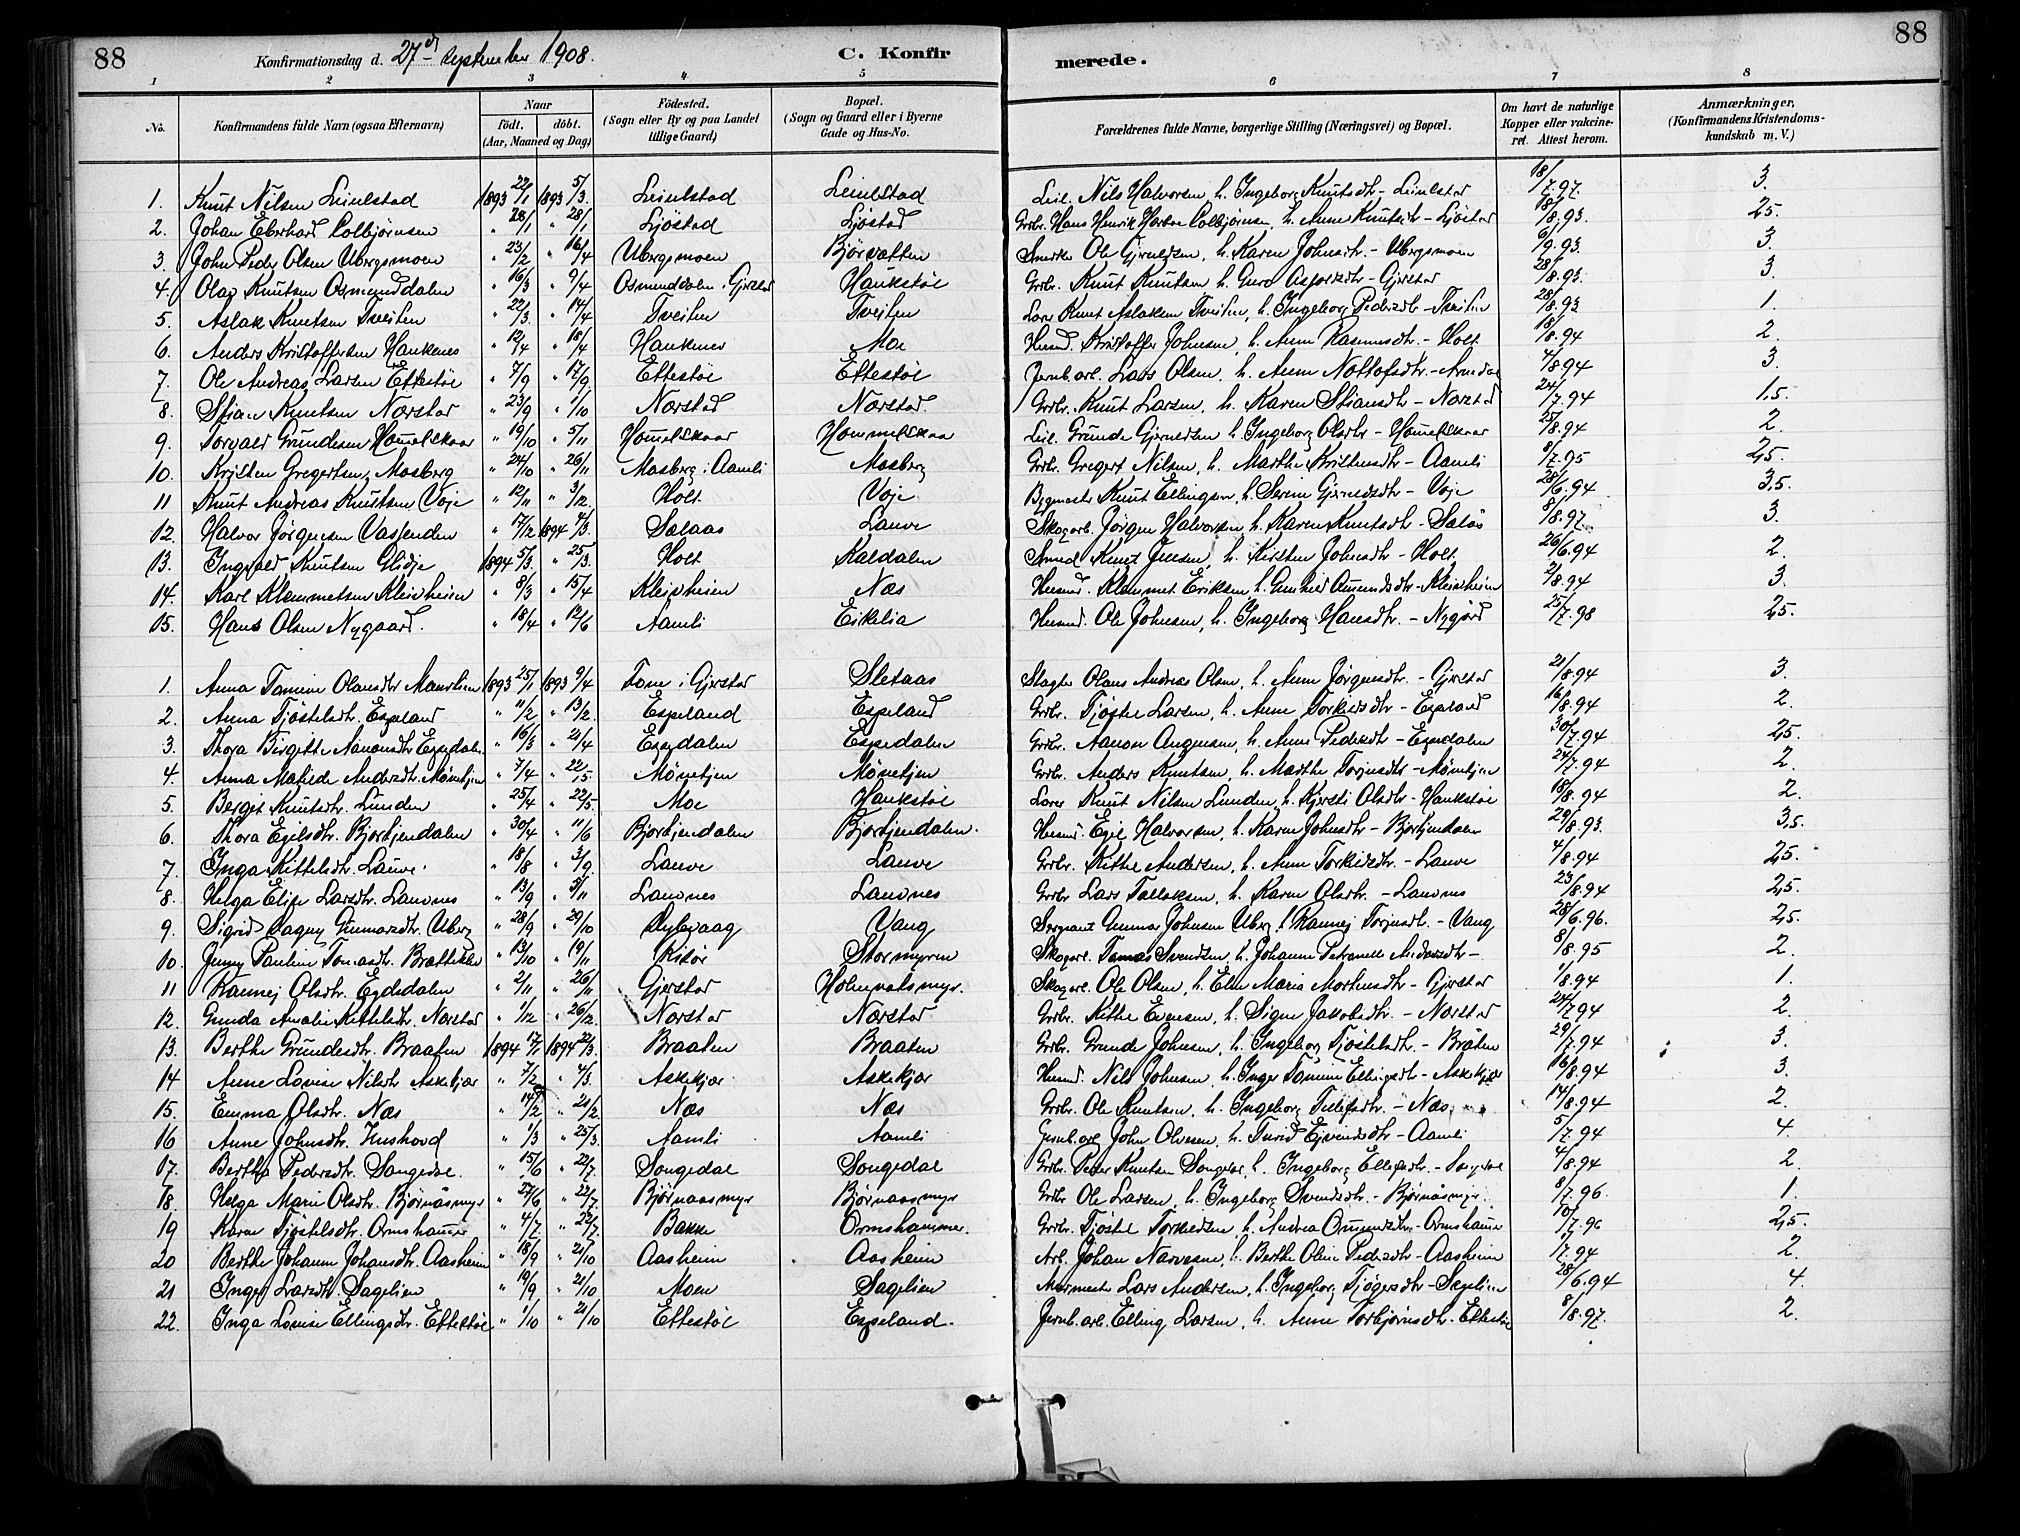 88 Konfirmationsdag d. 27de September 1908. C. Konfirmerede. 88
1 2 3 4 5 6 7 8
No. Konfirmandens fulde Navn (ogsaa Efternavn) Naar födt, döbt. (Aar, Maaned og Dag) Födested. (Sogn eller By og paa Landet tillige Gaard) Bopæl. (Sogn og Gaard eller i Byerne Gade og Hus-No. Forældrenes fulde Navne, borgerlige Stilling (Næringsvei) og Bopæl. Om havt de naturlige Kopper eller vakcineret. Attest herom. Anmærkninger, (Konfirmandens Kristendomskundskab m. V.)
1. Knut Nilsen Leivlstad 1893 22/1 1893 5/3. Leivlstad Leivlstad Leil. Nils Halvorsen, h. Ingeborg Knutsdtr - Leivlstad 18/7.97. 3.
2. Johan Eberhard Colbjørnsen " 28/1 " 28/1 Ljøstad Ljøstad Grbr. Hans Henrik Colbjørnsen, h. Anne Knutsdtr - Ljøstad 18/8.93. 2,5.
3. John Peder Olsen Ubergsmoen " 23/2 " 16/4 Ubergsmoen Bjørvatten Snerker Ole Gjeruldsen, h. Karen Johnsdtr. - Ubergsmoen 6/9.93. 3.
4. Olav Knutsen Osmunddalen " 16/3 " 9/4 Osmunddalen i Gjerstad Haukstøl Grbr. Knut Knutsen h. Guro - Gjerstad 28/8.93. 3.
5. Aslak Knutsen Tveiten " 22/3. " 14/4 Tveiten Tveiten Knut Aslaksen Tveiten, h. Ingeborg Pedersdtr - Tveiten 28/8.93 1.
6. Anders Kristoffersen Haukenes " 12/4 " 18/4 Haukenes Moe Husmd. Kristoffer Johnsen, h. Anne Rasmusdtr. - Holt 18/8.94 2.
7. Ole Andreas Larsen Ettestøl " 7/9 " 17/9. Ettestøl Ettestøl Jernb.arb. Lars Olsen, h. Anne - Arendal 4/8.94 3.
8. Stian Knutsen Norstad " 23/9 " 1/10 Norstad Norstad. Grbr. Knut Larsen, h. Karen Stiansdtr - Norstad 24/7.94 1,5.
9. Torvald Grundesen Homelskaar " 19/10 " 5/11 Homelskaar Hommelskaa Leil. Grunde Gjeruldsen h. Ingeborg Olsdtr - Homelskaar 25/8.94 2.
10. Kristen Gregertsen Mosberg " 24/10 " 26/11 Mosberg i Aamli Mosberg Grbr. Gregert Nilsen, h. Marthe Kristensdtr - Aamli 8/7.95 2,5.
11 Knut Andreas Knutsen Voje " 12/11 " 3/12. Holt Voje Bygmester Knut Ellingsen, h. Serine Gjeruldsdtr - Voje 28/6.94 3,5.
12. Halvor Jørgensen Vassenden " 17/12 1894 4/3. Salaas Lauve Skogarb. Jørgen Halvorsen, h. Karen Knutsdtr - Salås 8/8.97. 3.
13. Ingvald Knutsen Glidje 1894 5/3. " 25/3. Holt Kaldalen Smed Knut Jensen, h. Kirsten Johnsdtr - Holt 26/6.94 2.
14. Karl Klemmetsen Kleivheien " 8/3 " 15/4 Kleivheien Næs Husmd. Klemmet Eriksen, h. Gunhild Amundsdtr - Kleivheien 2/8.94 3.
15. Hans Olsen Nygaard. " 18/4 " 12/6 Aamli Eikelia Husmd. Ole Johnsen, h. Ingeborg Hansdtr. - Nygård 25/7.98 2,5.
1. Anna Tomine Olausdtr 1893 25/1 1893 9/4 Tone i Gjerstad Sletaas Slagter Olaus Andreas Olsen, h. Anne Jørgensdtr. - Gjerstad 21/8.94 3.
2. Anna Tjøstelsdtr. Espeland " 11/2 " 13/2. Espeland Espeland Grbr. Tjøstel Larsen, h. Anne Torkelsdtr - Espeland 16/8.94 2.
3. Thora Birgitte Aanonsdtr Espedalen " 16/3 " 21/4 Espedalen Espedalen Grbr. Aanon h. Anne Pedersdtr - Espedalen 30/7.94 2,5.
4. Anna Matilde Andersdtr. Mønekjen " 7/4 " 22/5 Mønekjen Mønekjen Grbr. Anders Knutsen, h. Marthe Torjusdtr - Mønekjen 24/7.94 2.
5. Bergit Knutsdtr. Lunden " 25/4 " 22/5. Moe Haukstøl Knut Nilsen Lunden, h. Kjersti Olsdtr - Haukstøl 18/8.94 2.
6. Thora Egilsdtr. Bjortjendalen " 30/4 " 11/6 Bjortjendalen Bjortjendalen. Husmd. Egil Halvorsen, h. Karen Johnsdtr - Bjortjendalen 29/8.93. 3,5.
7. Inga Kittelsdtr. Lauve. " 18/8 " 3/9. Lauve Lauve Grbr. Kittel Andersen, h. Anne Torkildsdtr. - Lauve 4/8.94 2,5.
8. Helga Elise Larsdtr. Lauvnes " 13/9 " 5/11 Lauvnes Lauvnes Grbr. Lars Tellefsen, h. Karen Olsdtr. - Lauvnes 23/8.94 2,5.
9. Sigrid Dagny Gunnarsdtr. Uberg " 28/9 " 29/10 Dybvaag Vang Sergeant Gunnar Johnsen Uberg, h. Rannej Torjusdtr. - Vang 28/6.96. 2,5.
10. Jenny Pauline Tomasdtr. Brættekleiv " 13/10 " 19/11 Risør Stormyren Skogarb. Tomas Svendsen, h. Johanne Petronelle Andersdtr - 8/8.95 2.
11 Rannej Olsdtr. Egdedalen " 2/11 " 26/11 Gjerstad Holmvatsmyr. Skogarb. Ole Olsen, h. Elen Maria Mortensdtr - Gjerstad 1/8.94 1.
12. Gunda Amalie Kittelsdtr. Norstad " 1/12 " 26/12. Norstad Norstad Grbr. Kittel Evensen, h. Signe Jakobsdtr. - Norstad 24/7.94 2.
13. Berthe Grundesdtr. Braaten 1894 17/1 1894 22/3. Braaten Braaten Grbr. Grunde Johnsen, h. Ingeborg Tjøstelsdtr. - Bråten 29/7.94 3.
14 Anne Lovise Nilsdtr Askekjær " 7/2 " 4/3. Askekjær. Askekjær Husmd. Nils Johnsen, h. Inger Tomine Ellingsdtr - Askekjær 16/8.94 3.
15. Emma Olsdtr. Næs " 14/2 " 21/2. Næs Næs Grbr. Ole Knutsen, h. Ingeborg Tellefsdtr. - Næs 14/8.94 2.
16 Anne Johnsdtr. Hushovd " 1/3 " 25/3. Aamli Aamli Jernb.arb. John Olvesen, h. Turid Ejvindsdtr - Aamli 5/7.94 4.
17. Bertha Pedersdtr. Songedal " 15/6 " 22/7. Songedal Songedal Grbr. Peder Knutsen Songedal, h. Ingeborg Ellefsdtr. - Songedal 4/8.94 2.
18. Helga Marie Olsdtr. Bjørnåsmyr " 27/6 " 22/7. Bjørnaasmyr Bjørnaasmyr Grbr Ole Larsen, h. Ingeborg Svendsdtr. - Bjørnåsmyr. 8/7.96. 1.
19 Karen Tjøstelsdtr. Ormshamer " 4/7 " 22/7. Bakke Ormshammer. Grbr. Tjøstel Torkildsen, h. Andrea Osmundsdtr - Ormshamer 10/7.96 2,5.
20 Berthe Johanne Johansdtr. Aasheim " 18/9 " 21/10 Aasheim Aasheim Arb. Johan Narvesen, h. Berthe Oline Pedersdtr - Aasheim 17.94 2.
21 Inger Larsdtr. Sagelien " 19/9 " 21/10 Moen Sagelien Murmester Lars Andersen, h. Ingeborg Tjøgersdtr - Sagelien 28/6.94 4.
22. Inga Lovise Ellingsdtr. Ettestøl " 1/10 " 21/10 Ettestøl Espeland. Jernb.arb. Elling Larsen, h. Anne Torbjørnsdtr. - Ettestøl 8/8.97. 2.